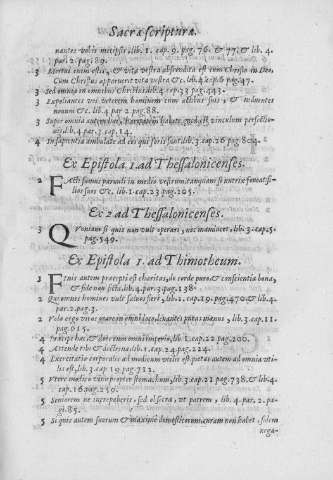 Sacræ scripturæ.
nantes vobis metipsis, lib. 1. cap. 9. pag. 76. & 77, & lib. 4.
par. 2. pag. 89.
3 Mortui enim estis, & vita vestra abscondita est cum Christo in Deo,
Cum Christus apparuerit vita vestra &c. lib. 4. cap. 6 pag. 47.
3 Sed omnia in omnibus Christus lib. 4. cap. 23 pag. 443.
3 Expoliantes vos veterem hominem cum actibus suis, & induentes
novum &c. lib. 4 par. 2 pag. 88.
3 Super omnia autem hæc, charitatem habete, quod est vinculum perfectio-
nis, lib. 4 par. 3. cap. 14.
4 In sapientia ambulate ad eos qui foris sunt lib. 3. cap. 26 pag. 804.
Ex Epistola 1. ad Thessalonicenses.
2 Facti sumus parvuli in medio vestrum, tanquam si nutrix foveat fi-
lios suos &c. lib. 1. cap. 23 pag. 205.
Ex 2 ad Thessalonicenses.
3 Quoniam si quis non vult operari, nec manducet, lib. 3. cap. 5.
pag. 549.
Ex Epistola 1. ad Thimotheum.
1 Finis autem præcepti est charitas, de corde puro & conscientia bona,
& fide non ficta, lib. 4. par. 3 pag. 138.
2 Qui omnes homines vult salvos fieri, lib. 1. cap. 19. pag. 470 & lib. 4.
par. 2. pag. 3.
2 Volo ergo viros orare in omni loco, levantes puras manus, lib. 3. cap. 11.
pag. 615.
4 Præcipe hæc & doce cum omni imperio, lib. 1. cap. 22 pag. 200.
4 Attende tibi & doctrinæ, lib. 1. cap. 24 pag. 224.
4 Exercitatio corporalis ad modicum utilis est, pietas autem ad omnia uti-
lis est, lib. 3. cap. 19 pag. 712.
5 Utere modico vino propter stomachum, lib. 3. cap. 21 pag. 738. & lib. 4.
cap. 16. pag. 250.
5 Seniorem ne increpaberis, sed obsecra, ut patrem, lib. 4. par. 2. pa-
gi. 85.
5 Si quis autem suorum & maxime domesticorum curam non habet, fidem
nega-